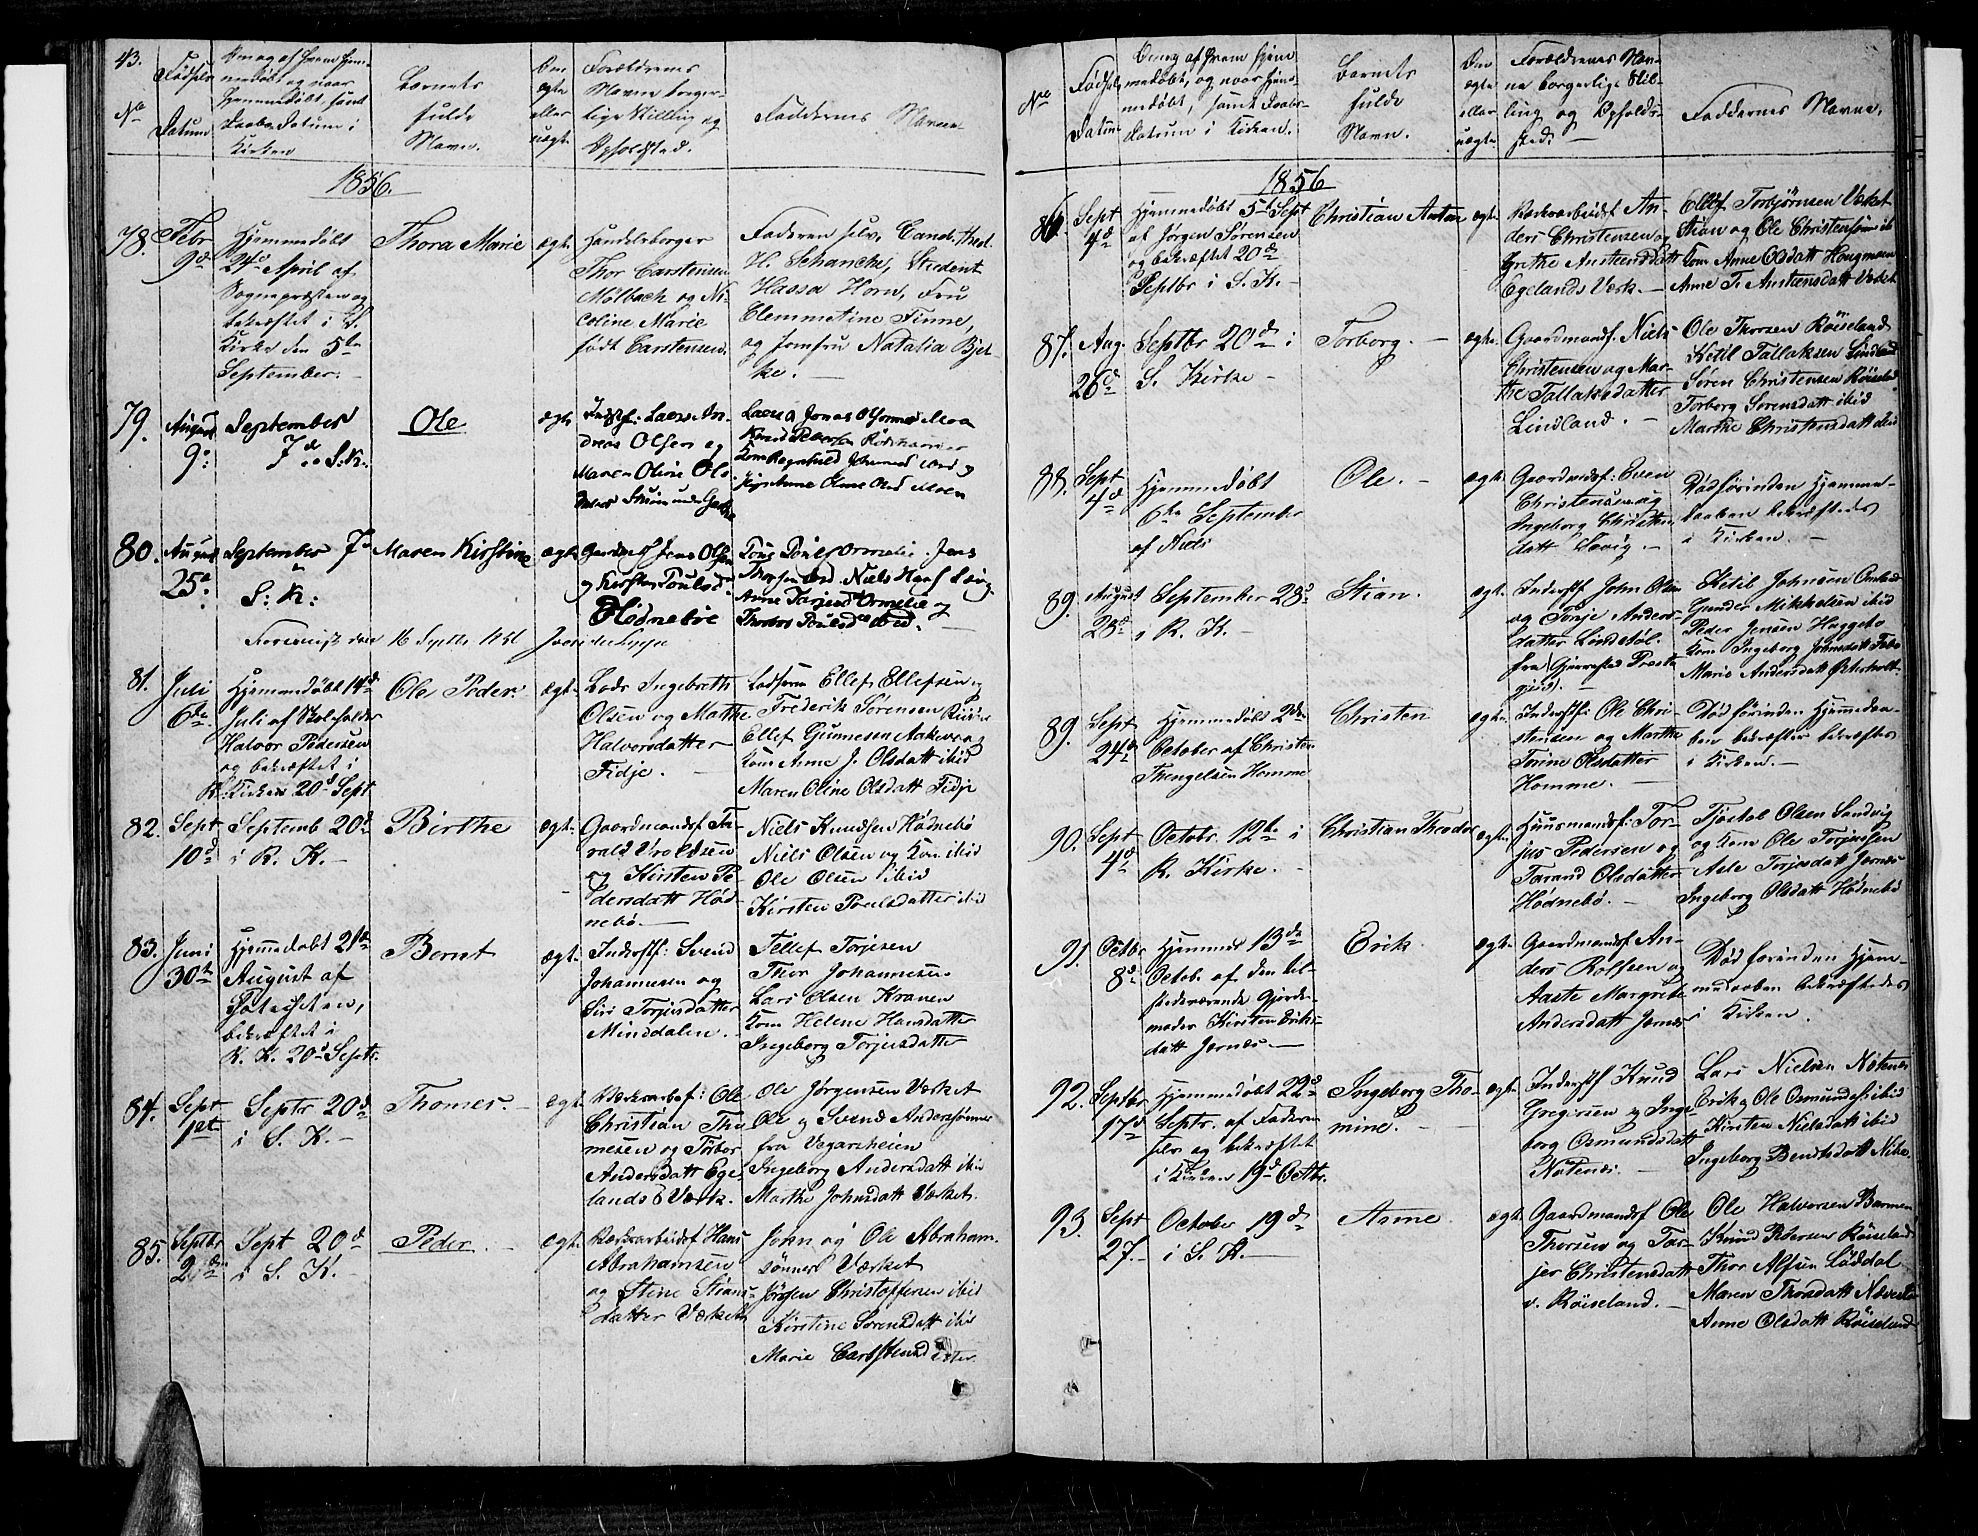 43.
No
Fødsels
Datum
Om og af hvem hjem-
medøbt, og naar
hjemmedøbt, samt
Daabs-Datum i
Kirken
Barnets
fulde
Navn.
Om
ægte
eller
uægte
Forældrenes
Navne borger-
lige Stilling og
Opholdsted.
Faddernes Navne
1856.
78.
Febr
9de
Hjemmedøbt
24de April af
Sognepræsten og
bekræftet i S.
Kirke den 5te
September.
Thora Marie
ægte
Handelsborger
Thor Carstensen
Mølbach og Ni-
coline Marie
født Carstensen
Faderen selv, Cand. theol
H. Schanche, Student
Hassa Horn, Fru
Clemmetine Finne,
og Jomfru Natalia Bjel-
ke.
79.
August
9de
September
7de S: K:
Ole
ægte
Indstf: Lars An-
dreas Olsen og
Maren Oline Ols
80.
August
25de
September 7de
S: K:
Maren Kirstine
ægte
Gaardmdsf Jens Olsen
og Kirsten Poulsd
Hødnebøe
Forevist den 16 Septbr 1856
81.
Juli
6te
Hjemmedøbt 14de
Juli af Skoleholder
Halvor Pedersen
og bekræftet i
R. Kirken 20de Sept
Ole Peder.
ægte
Lods Ingebreth
Olsen og Marthe
Halvorsdatter
Fidje.
Lodserne Ellef Ellefsen og
Frederik Sørensen
Ellef Gunnesen Aakvaag
Kone Anne J. Olsdatt ibid
Maren Oline Olsdatt Fidje
82.
Sept
10de
Septemb 20de
i R. K.
Birthe
ægte
Gaardmandsf Ha-
rald Vroldsen
og Kirsten Pe-
dersdatt Hød-
nebø.
Niels Knudsen Hødnebø
Niels Olsen og Kone ibid
Ole Olsen ibid
Kirsten Poulsdatter ibid
83.
Juni
30te
Hjemmedøbt 21de
August af
bekræftet i
R. K. 20de Septr.
Bernt
ægte
Inderstf: Svend
Johannesen og
Siri Torjusdatter
Minddalen.
Tellef Torjesen
Thor Johannesen
Lars Olsen Kranen
Kone Helene Hansdatter
Ingeborg Torjusdatter
84.
Sept
1st
Septr 20de
i S. K.
Thomes.
ægte
Værksarbf: Ole
Christian Tho-
mesen og Torbor
Andersdatt Ege-
lands Værk.
Ole Jørgensen Værket
Ole og Svend Anderssønner
fra Vegarsheien
Ingeborg Andersdatt ibid
Marthe Johnsdatt Værket.
85.
Septbr
2den
Sept 20de
i S. K.
Peder.
ægte
Værksarbeidsf Hans
Abrahamsen
og Stine Stians-
datter Værket
John og Ole Abraham-
sønner Værket
Jørgen Christoffersen ibid
Kirstine Sørensdatt ibid
Marie
No
Fødsels
Datum
Om og af hvem hjem-
medøbt, og naar hjem-
medøbt, samt Daabs-
datum i Kirken.
Barnets
fulde
Navn.
Om
ægte
eller
uægte
Forældrenes Nav-
ne borgerlige Stil-
ling og Opholds-
sted.
Faddernes Navne,
1856
86.
Sept
4de
Hjemmedøbt 5te Sept
af Jørgen Sørensen
og bekræftet 20de
Septbr i S. K.
Christian Anton
ægte
Værksarbeidsf An-
ders Christensen og
Grethe Anstensdatt
Egelands Værk.
Ellef Torbjørnsen Værket
Stian og Ole Christensøn ibid
Kone Anne Olsdatt Hougmoen
Anne T. Anstensdatt Værket
87.
Aug.
26de
Septbr 20de i
S. Kirke
Torborg.
ægte
Gaardmandsf. Niels
Christensen og Mar-
the Tallaksdatter
Lindland.
Ole Thorsen Røiseland
Ketil Tallaksen Lindland
Søren Christensen Røiseland
Torborg Sørensdatt ibid
Marthe Christensdatt ibid
88.
Sept
4de
Hjemmedøbt
6te September
af Niels
Ole.
ægte
Gaardmdsf: Even
Christensen og
Ingeborg Christen-
datt Savig.
Død førinden Hjemme-
daaben bekræftedes
i Kirken.
89.
August
28de
September 28de
i R. K.
Stian.
ægte
Inderstf John Olsen
og Tonje Anders-
datter Lindstøl
fra Gjerrestad Præste-
gjeld.
Ketil Johnsen
Gunder Mikkelsen ibid
Peder Jensen
Kone Ingeborg Johnsdatt
Marie Andersdatt
89.
Sept.
24de
Hjemmedøbt 2den
October af Christen
Thengelsen Homme
Christen
ægte
Inderstf: Ole Chri-
stensen og Marthe
Torine Olsdatter
Homme.
Død førinden Hjemmedaa-
ben bekræftes bekræftes
i Kirken.
90.
Sept.
4de
Octobr. 12te i
R. Kirke.
Christian Theodor
ægte
Huusmandsf: Tor-
jus Pedersen og
Tarand Olsdatter
Hødnebø.
Tjøstol Olsen Sandvig
og Kone Ole Torjusen
Asle Torjusdatt Jernæs
Ingeborg Olsdatt Hødnebø
91.
Octobr
8de
Hjemmed 13de
Octob. af den til-
stedeværende Gjorde-
moder Kirsten Eriks-
datt Jernæs.
Erik
ægte
Gaardmandsf An-
ders Rolfsen og
Aaste Margrete
Andersdatt Jernæs
Død førinden Hjem-
medaaben bekræftedes
i Kirken.
92.
Septbr
17de
Hjemmedøbt 22de
Septr. af Faderen
selv og bekræftet
i Kirken 19de Octbr.
Ingeborg Tho-
mine.
ægte
Inderstf Knud
Gregersen og Inge-
borg Osmundsdatt
Notenæs.
Lars Nielsen Notenæs
Erik og Ole Osmundsen ibid
Kirsten Nielsdatt ibid
Ingeborg Bendtsdatt
93.
Sept
27.
October 19de
i S. K.
Anne.
ægte
Gaardmandsf Ole
Thorsen og Tar-
jer Christensdatt
v. Røiseland.
Ole Halvorsen Barmen
Knud Pedersen Røiseland
Thor Alfsen Løddal
Maren Thorsdatt
Anne Olsdatt Røiseland